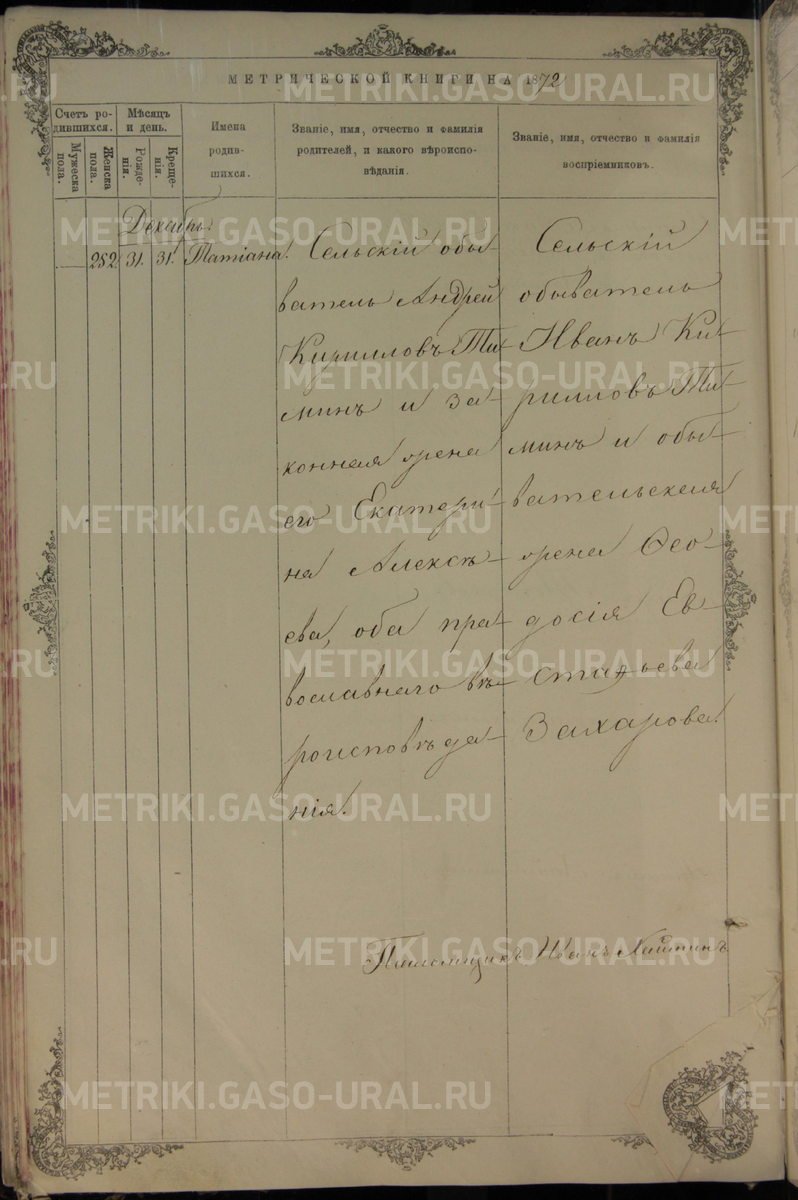 МЕТРИЧЕСКОЙ КНИГИ НА 1872
Счетъ ро-
дившихся.
Мужеска
пола.
Женска
пола.
Мѣсяцъ
и день.
Рожде-
нія.
Креще-
нія.
Имена
родив-
шихся.
Званіе, имя, отчество и фамилія
родителей, и какого вѣроиспо-
вѣданія.
Званіе, имя, отчество и фамилія
воспріемниковъ.
Декабрь.
282. 31. 31. Татіана.
Сельскій обы-
ватель Андрей
Кирилловъ Ти-
минъ и за-
конная жена
его Екатери-
на Алексѣ-
ева, оба пра-
вославнаго вѣ-
роисповѣда-
нія.
Сельскій
обыватель
Иванъ Ки-
рилловъ Ти-
минъ и обы-
вательская
жена Ѳео-
досія Ев-
стафьева
Захарова.
Иванъ
METRIKI.GASO-URAL.RU